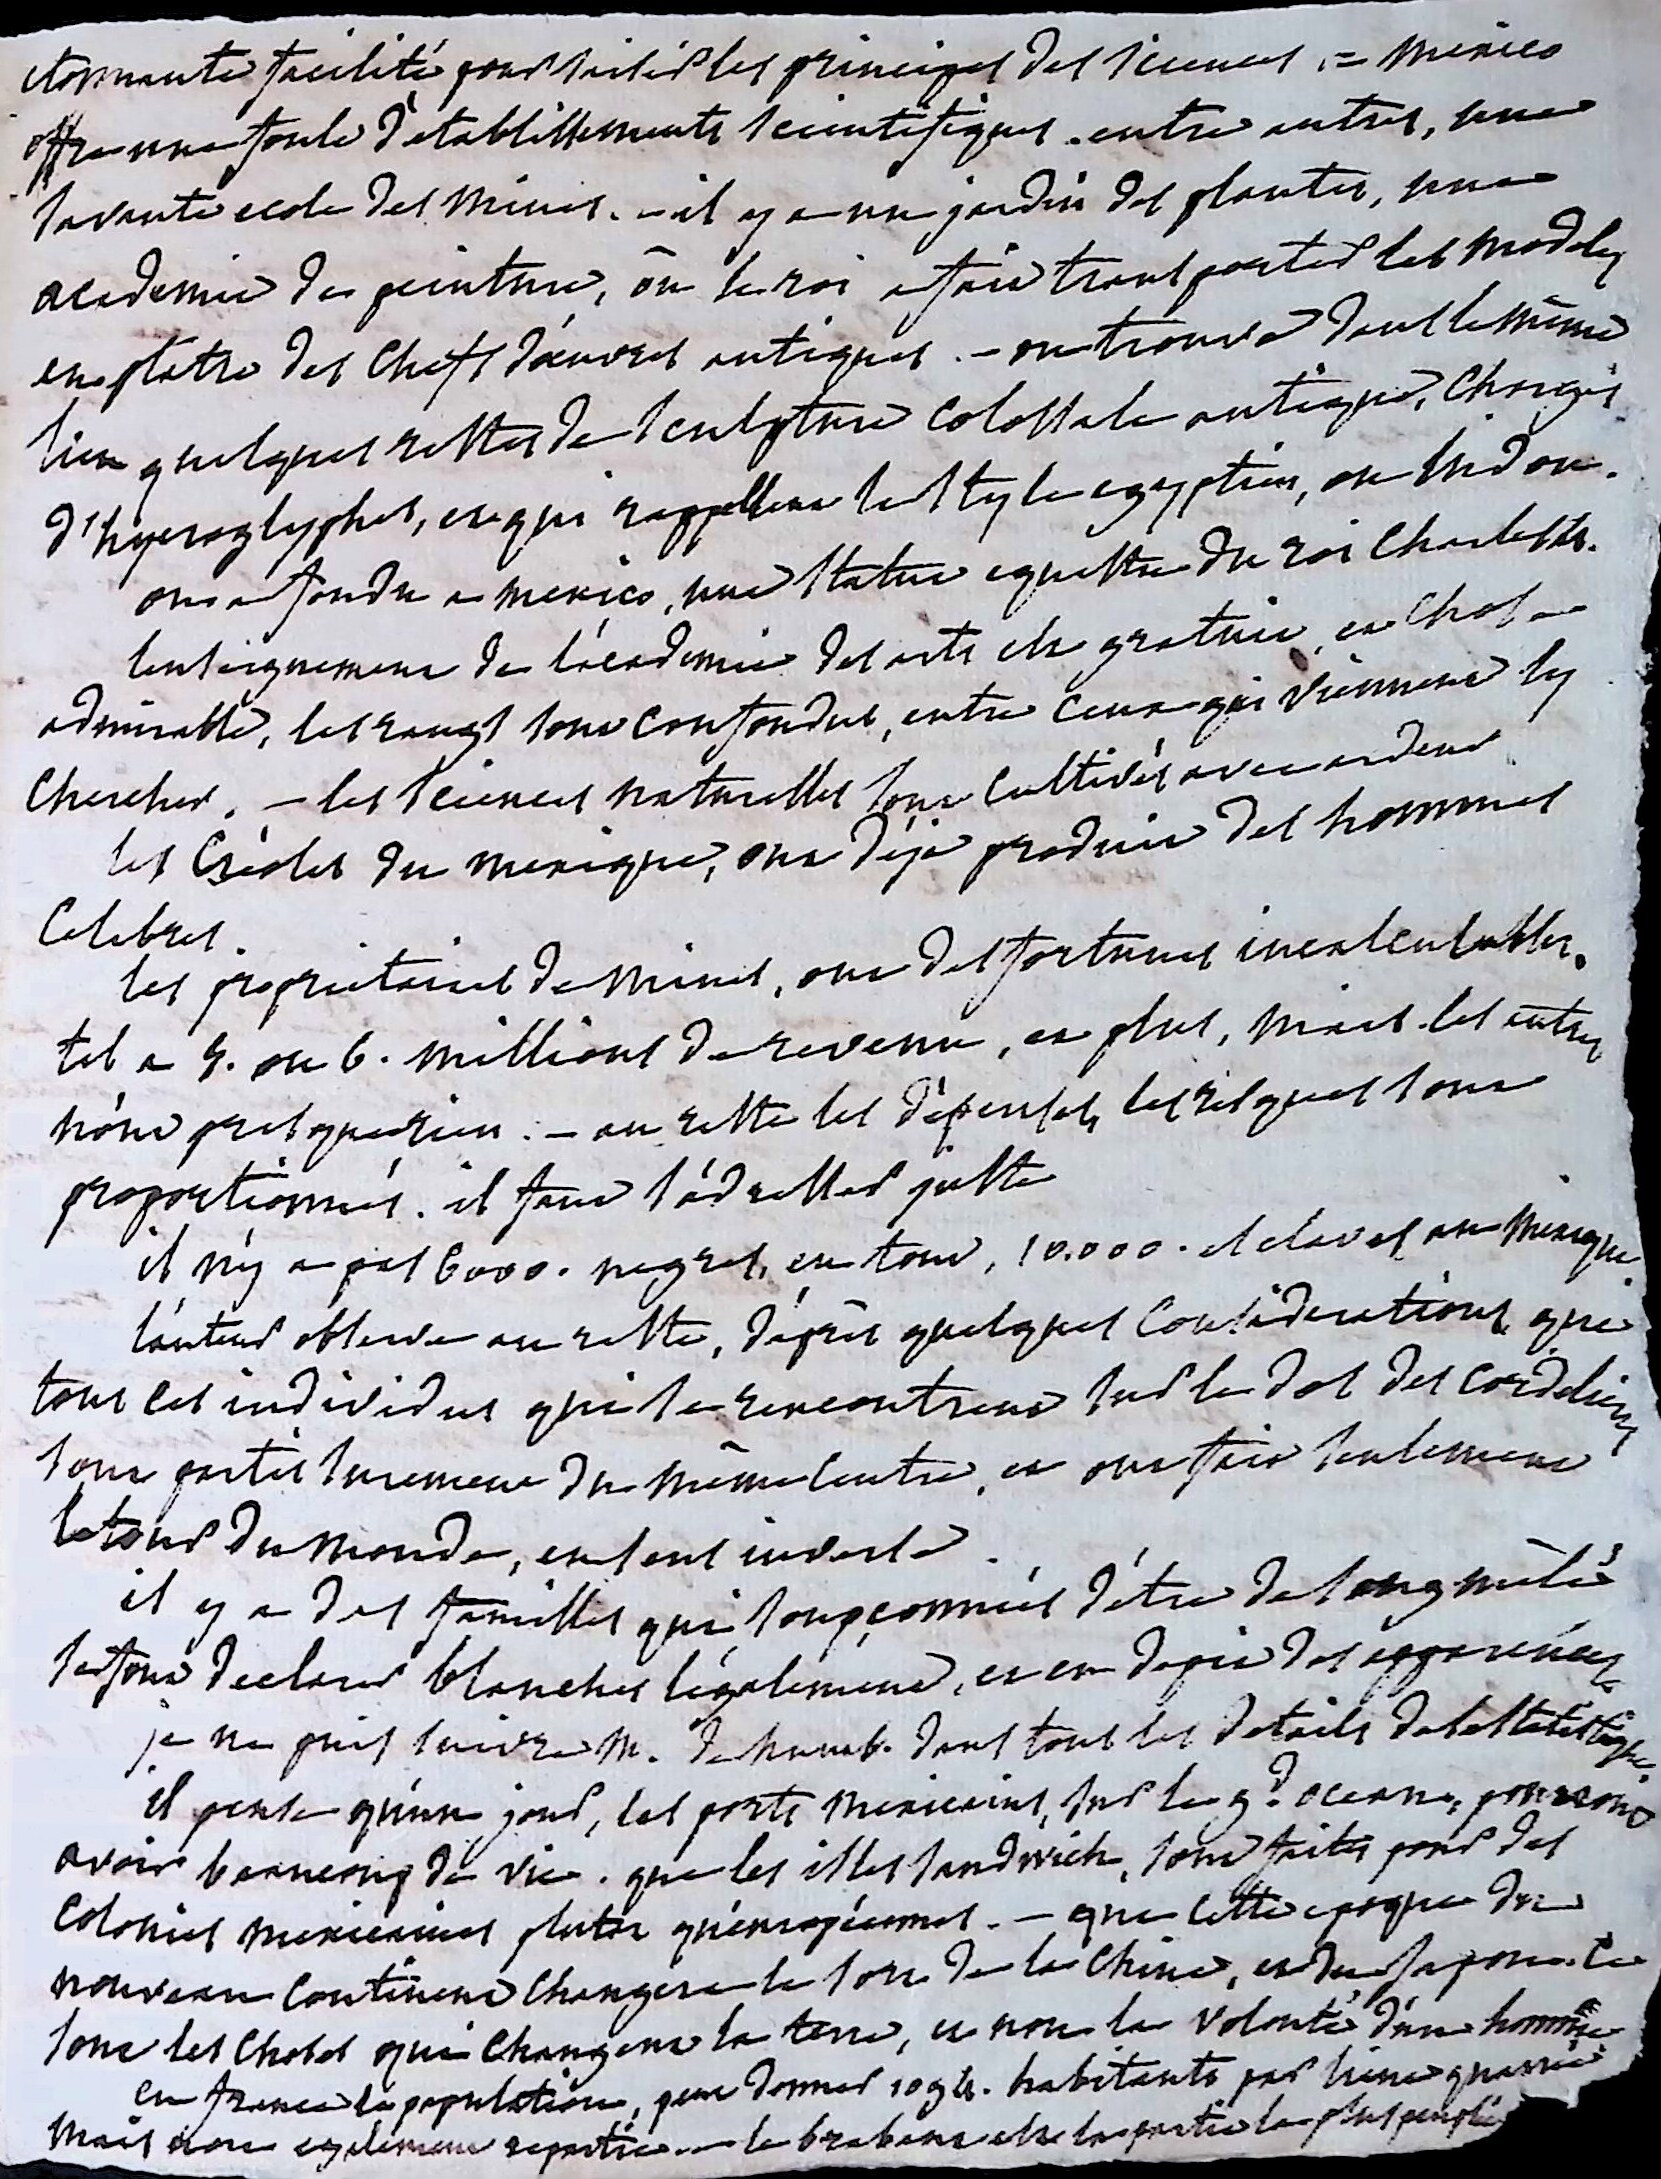 etonnante facilité pour saisir les principes des sciences. = mexico
offre une foule d'etablissements scientifiques. entre autres, une
savante ecole des mines. – il y a un jardin des plantes, une
academie de peinture, ou le roi a fait transporter les modeles
en platre des chefs d'œuvres antiques. – on trouve dans le même
lieu quelques restes de sculpture colossale antique, chargés
d'hyeroglyphes, et qui rappellent le style egyptien, ou hindou.
on a fondu a mexico, une statue equestre du roi Charles
lenseignement de l'academie des arts est gratuit, et chose
admirable, les rangs sont confondus, entre ceux qui viennent ly
chercher. – les sciences naturelles sont cultivés avec ardeur
les Créoles du mexique, ont déja produit des hommes
celebres.
les proprietaires de mines, ont des fortunes incalculables.
tel a 5. ou 6. millions de revenu, et plus, mais les autres
n'ont presque rien. – au reste les dépenses, les risques sont
proportionnés. il faut s'adresser juste
il n'y a pas 6000. negres, en tout, 10.000. esclaves au mexique.
l'auteur observe au reste, d'après quelques considerations, que
tous ces individus qui se rencontrent sur le dos des cordelieres
sont partis surement du même centre, et ont fait seulement
le tour du monde, en sens inverse.
il y a des familles qui soupçonnées d'être de sang mêlé
se font declarer blanches légalement, et en depit des apparences
je ne puis suivre M. de humb. dans tous les details de la statistique.
il pense qu'un jour, les ports mexicains, sur le gd. ocean, pourront
avoir beaucoup de vie. que les isles sandwich, sont faites pour des
colonies mexicaines plutot qu'européennes. – que cette epoque du
nouveau continent changera le sort de la Chine, et du Japon. ce
sont les choses qui changent la terre, et non la volonté d'un homme
en france la population, peut donner 1094. habitants par lieue quarrée
mais non egalement repartie. – le brabant est la partie la plus peuplée